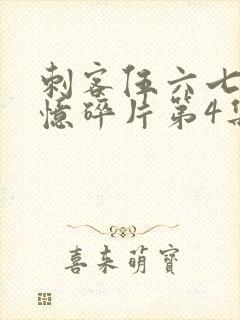 刺客伍六七
憶碎片第4集
喜来萌寶